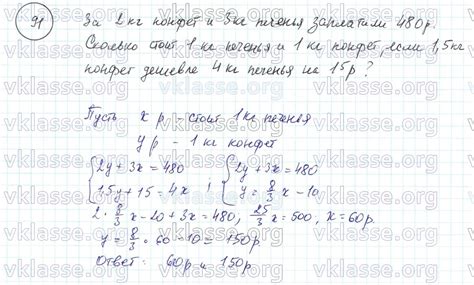 91 За 2 кг конфет и 3 кг печенья заплатили 480 р.
Сколько стоит 1 кг печенья и 1 кг конфет, если 1,5 кг
конфет дешевле 4 кг печенья на 15 р?
Пусть x р. - стоит 1 кг печенья
y р - 1 кг конфет
{2y + 3x = 480 {2y + 3x = 480
{1,5y + 15 = 4x ; {y = 8/3 x - 10
2 · 8/3 x - 20 + 3x = 480, 25/3 x = 500, x = 60 р.
y = 8/3 · 60 - 10 = 150 р.
Ответ: 60 р и 150 р.
vklasse.org